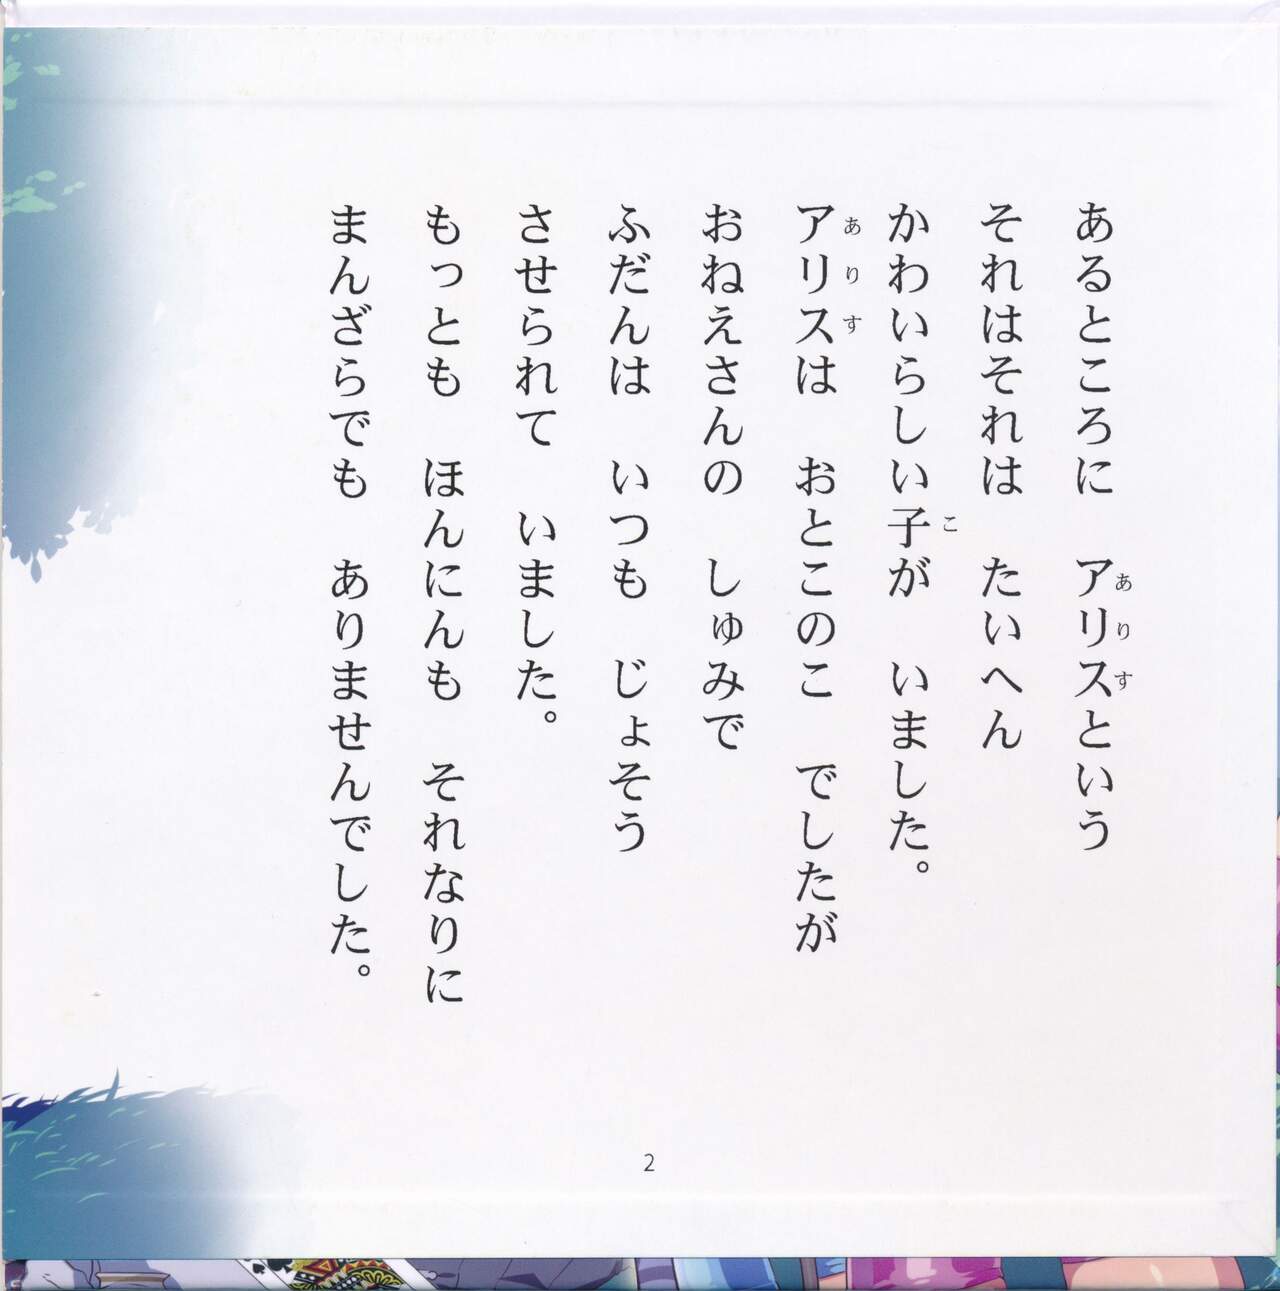 あるところに　アリスという
それはそれは　たいへん
かわいらしい子が　いました。
アリスは　おとこのこ　でしたが
おねえさんの　しゅみで
ふだんは　いつも　じょそう
させられて　いました。
もっとも　ほんにんも　それなりに
まんざらでも　ありませんでした。
2